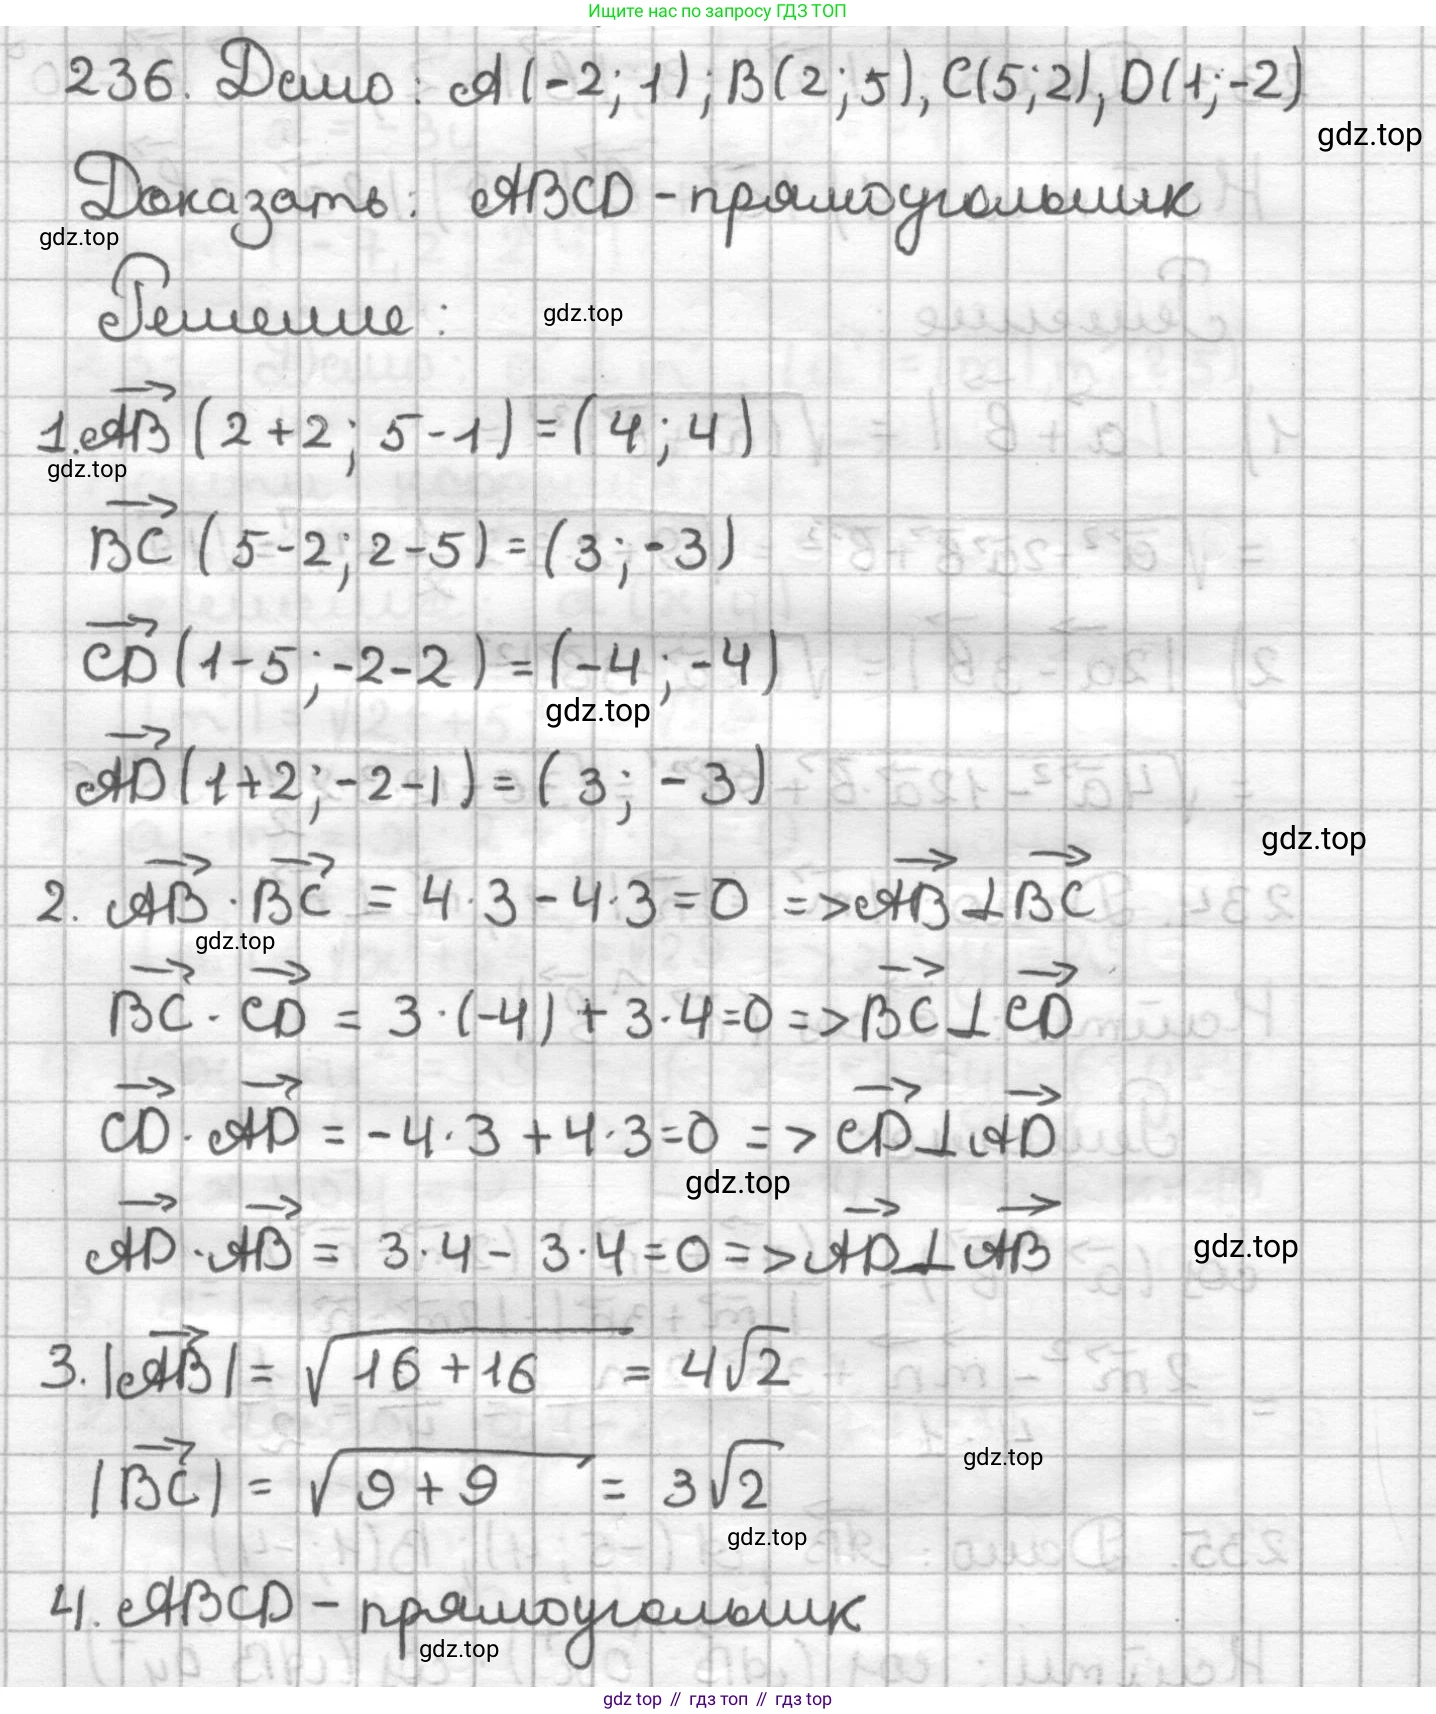 Ищите нас по запросу ГДЗ ТОП
236. Дано: A(-2; 1); B(2; 5), C(5; 2), D(1; -2)
gdz.top
Доказать: ABCD - прямоугольник
gdz.top
Решение:
gdz.top
1. AB→ (2+2; 5-1) = (4; 4)
gdz.top
BC→ (5-2; 2-5) = (3; -3)
CD→ (1-5; -2-2) = (-4; -4)
gdz.top
AD→ (1+2; -2-1) = (3; -3)
gdz.top
2. AB→ · BC→ = 4·3 - 4·3 = 0 => AB→ ⊥ BC→
gdz.top
BC→ · CD→ = 3·(-4) + 3·4 = 0 => BC→ ⊥ CD→
CD→ · AD→ = -4·3 + 4·3 = 0 => CD→ ⊥ AD→
gdz.top
AD→ · AB→ = 3·4 - 3·4 = 0 => AD→ ⊥ AB→
gdz.top
3. |AB→| = √(16+16) = 4√2
gdz.top
|BC→| = √(9+9) = 3√2
gdz.top
4. ABCD - прямоугольник
gdz.top
gdz top // гдз топ // gdz top